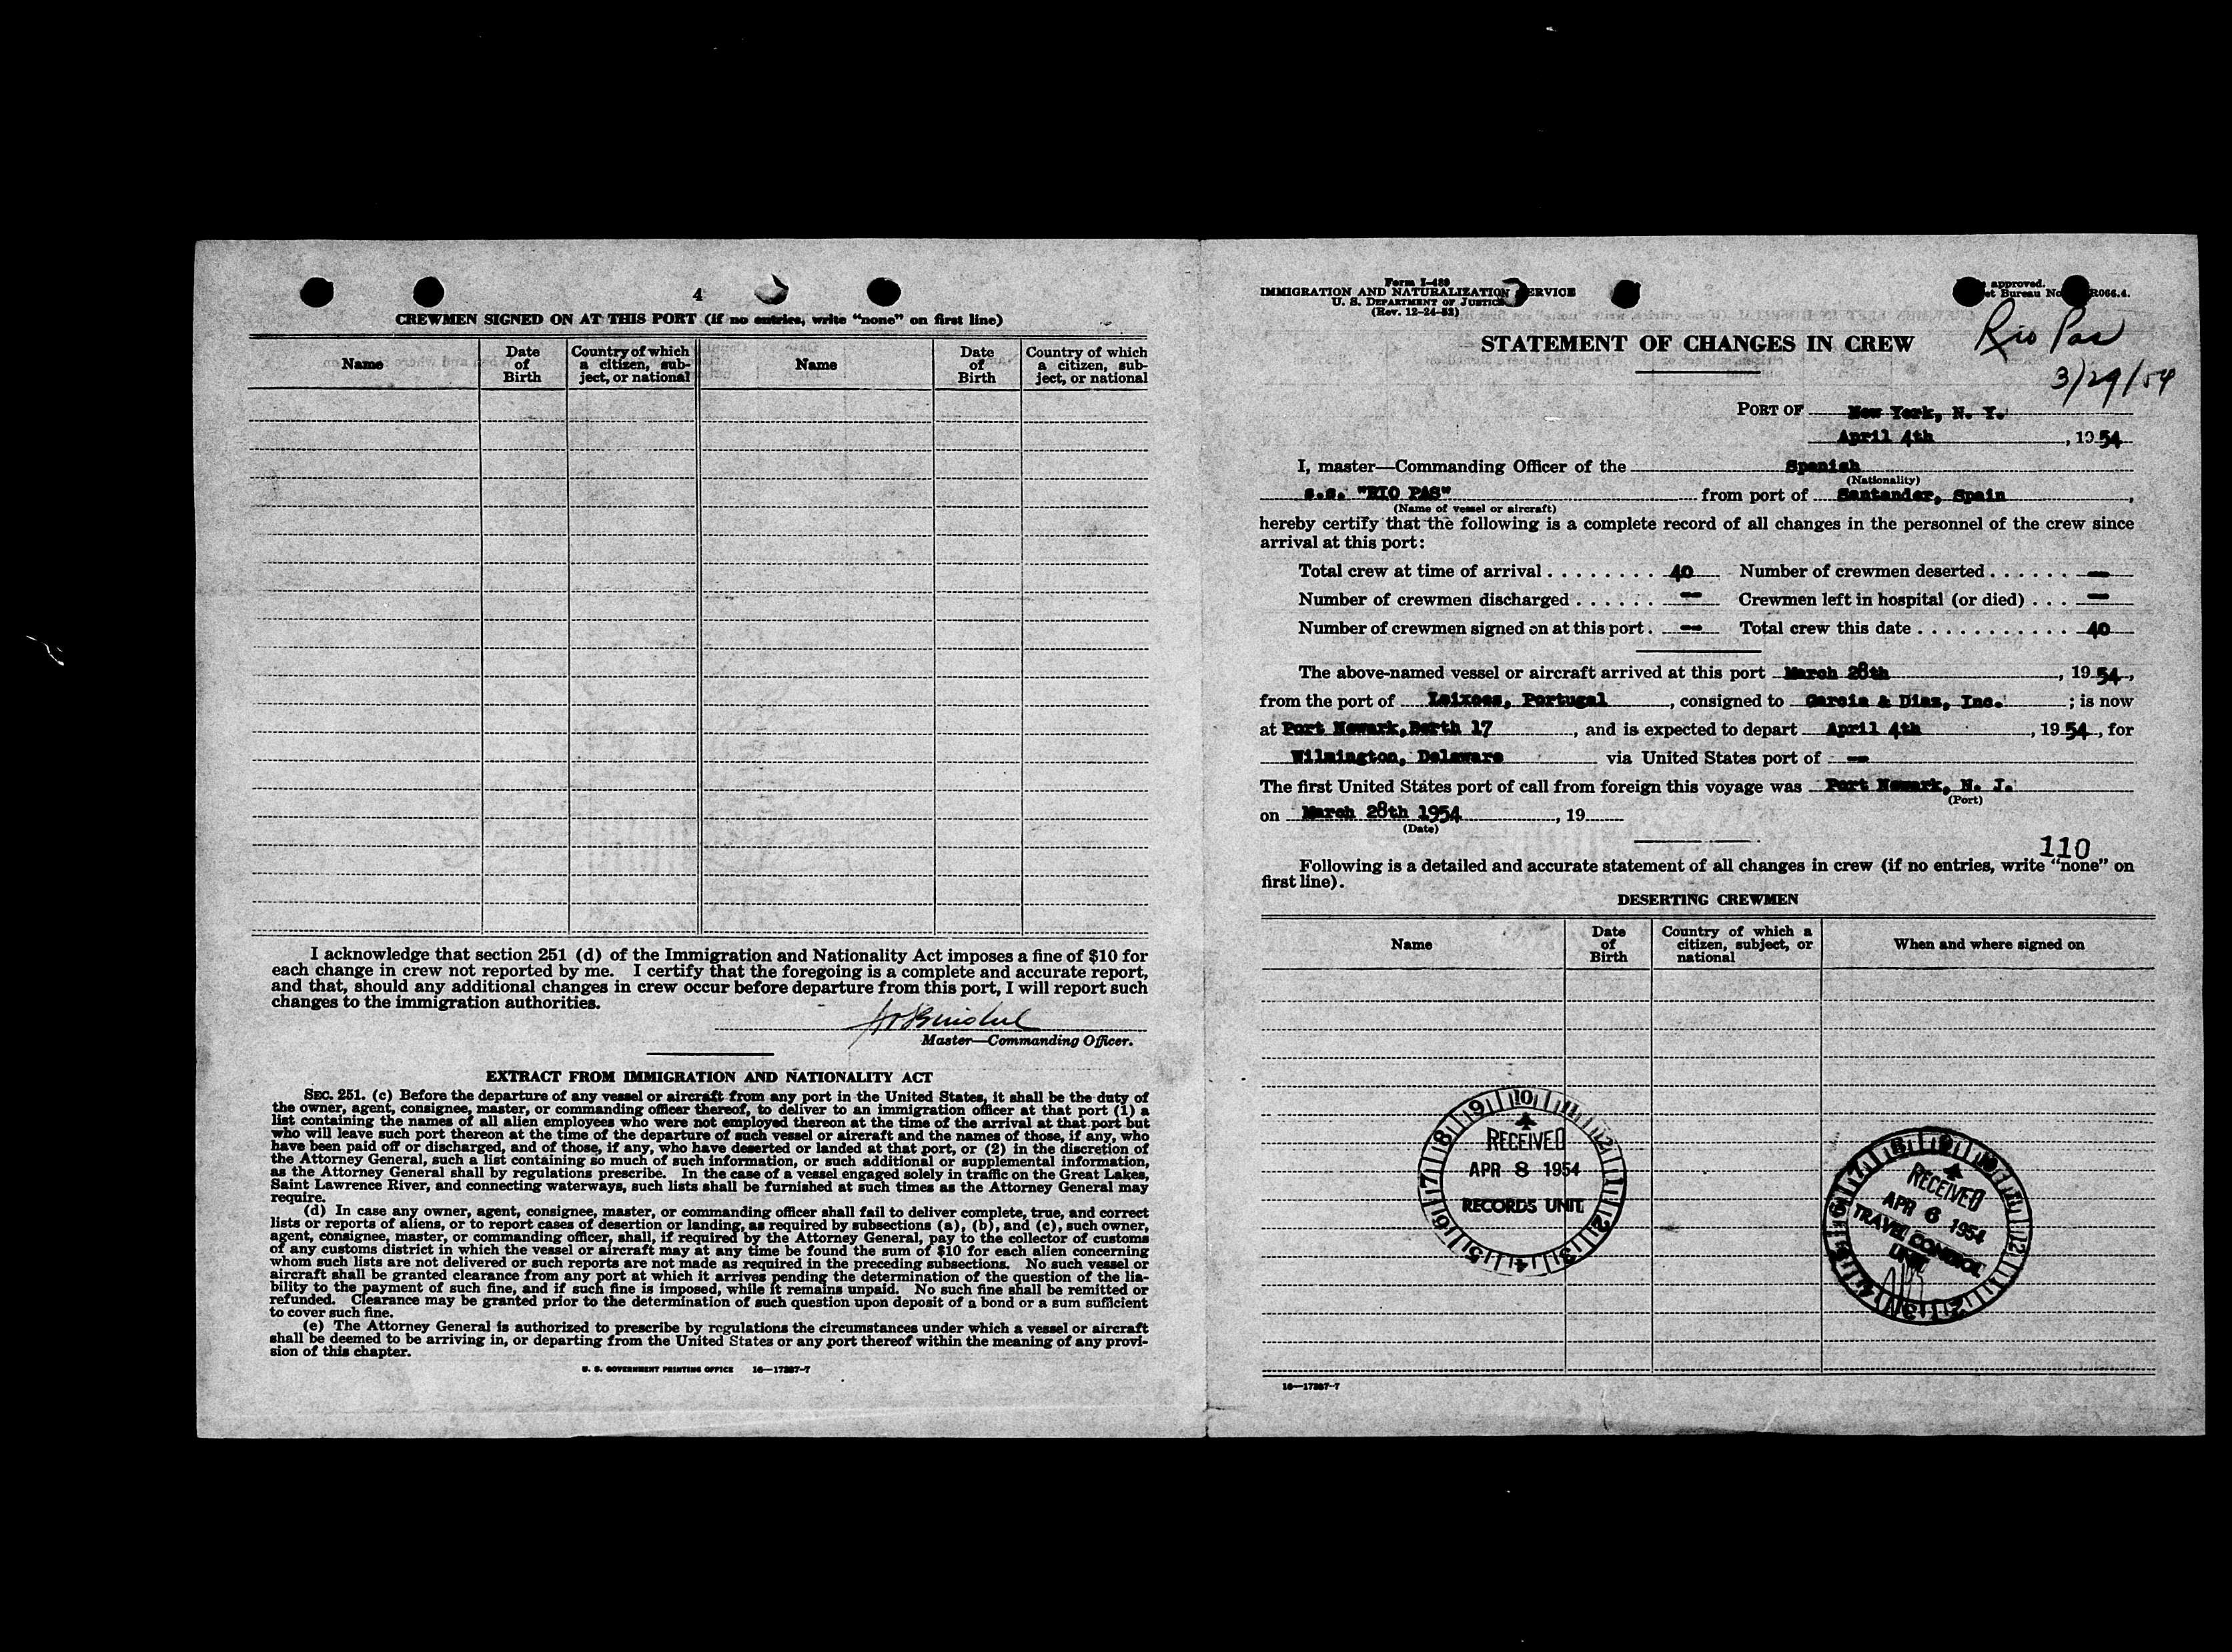 4
CREWMEN SIGNED ON AT THIS PORT (if no entries, write "none" on first line)
Name
Date of Birth
Country of which a citizen, subject, or national
Name
Date of Birth
Country of which a citizen, subject, or national
I acknowledge that section 251 (d) of the Immigration and Nationality Act imposes a fine of $10 for
each change in crew not reported by me. I certify that the foregoing is a complete and accurate report,
and that, should any additional changes in crew occur before departure from this port, I will report such
changes to the immigration authorities.
Master—Commanding Officer.
EXTRACT FROM IMMIGRATION AND NATIONALITY ACT
SEC. 251. (c) Before the departure of any vessel or aircraft from any port in the United States, it shall be the duty of
the owner, agent, consignee, master, or commanding officer thereof, to deliver to an immigration officer at that port (1) a
list containing the names of all alien employees who were not employed thereon at the time of the arrival at that port but
who will leave such port thereon at the time of the departure of such vessel or aircraft and the names of those, if any, who
have been paid off or discharged, and of those, if any, who have deserted or landed at that port, or (2) in the discretion of
the Attorney General, such a list containing so much of such information, or such additional or supplemental information,
as the Attorney General shall by regulations prescribe. In the case of a vessel engaged solely in traffic on the Great Lakes,
Saint Lawrence River, and connecting waterways, such lists shall be furnished at such times as the Attorney General may
require.
(d) In case any owner, agent, consignee, master, or commanding officer shall fail to deliver complete, true, and correct
lists or reports of aliens, or to report cases of desertion or landing, as required by subsections (a), (b), and (c), such owner,
agent, consignee, master, or commanding officer, shall, if required by the Attorney General, pay to the collector of customs
of any customs district in which the vessel or aircraft may at any time be found the sum of $10 for each alien concerning
whom such lists are not delivered or such reports are not made as required in the preceding subsections. No such vessel or
aircraft shall be granted clearance from any port at which it arrives pending the determination of the question of the lia-
bility to the payment of such fine, and if such fine is imposed, while it remains unpaid. No such fine shall be remitted or
refunded. Clearance may be granted prior to the determination of such question upon deposit of a bond or a sum sufficient
to cover such fine.
(e) The Attorney General is authorized to prescribe by regulations the circumstances under which a vessel or aircraft
shall be deemed to be arriving in, or departing from the United States or any port thereof within the meaning of any provi-
sion of this chapter.
U. S. GOVERNMENT PRINTING OFFICE 16—17287-7
Form I-489
IMMIGRATION AND NATURALIZATION SERVICE
U. S. DEPARTMENT OF JUSTICE
(Rev. 12-24-52)
approved.
et Bureau No. R066.4.
Rio Pas
3/29/54
STATEMENT OF CHANGES IN CREW
PORT OF New York, N. Y.
April 4th, 1954
I, master—Commanding Officer of the Spanish
(Nationality)
s.s. "RIO PAS" from port of Santander, Spain,
(Name of vessel or aircraft)
hereby certify that the following is a complete record of all changes in the personnel of the crew since
arrival at this port:
Total crew at time of arrival . . . . . . . . 40 Number of crewmen deserted . . . . . . —
Number of crewmen discharged . . . . . . — Crewmen left in hospital (or died) . . . —
Number of crewmen signed on at this port . — Total crew this date . . . . . . . . . . . . 40
The above-named vessel or aircraft arrived at this port March 28th, 1954,
from the port of Leixoes, Portugal, consigned to Garcia & Diaz, Inc. ; is now
at Port Newark, Berth 17, and is expected to depart April 4th, 1954, for
Wilmington, Delaware via United States port of —
The first United States port of call from foreign this voyage was Port Newark, N. J.
(Port)
on March 28th 1954, 19
(Date)
110
Following is a detailed and accurate statement of all changes in crew (if no entries, write "none" on
first line).
DESERTING CREWMEN
Name
Date of Birth
Country of which a citizen, subject, or national
When and where signed on
9 10 11 12 1 2 3 4 5 6 7 8
RECEIVED
APR 8 1954
RECORDS UNIT
RECEIVED
APR 6 1954
TRAVEL CONTROL
UNIT
16—17287-7